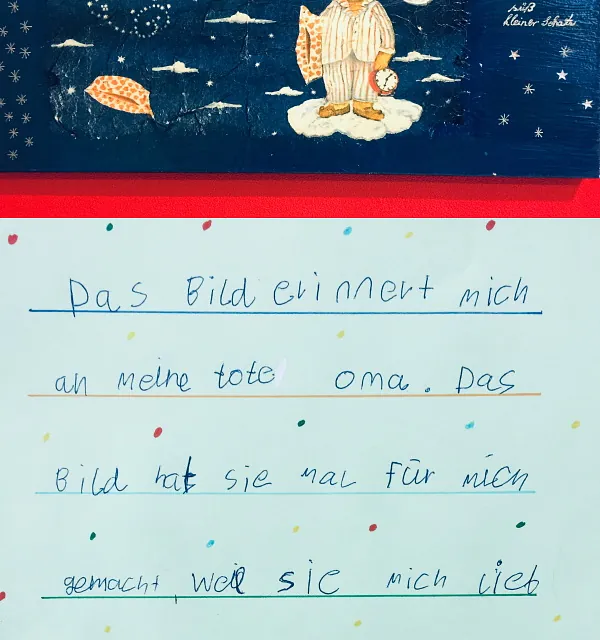 süß
kleiner Schatz
Das Bild erinnert mich
an meine tote Oma. Das
Bild hat sie mal für mich
gemacht, weil sie mich lieb